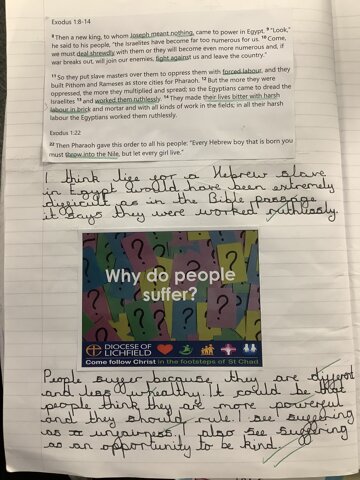 Exodus 1:8-14
8 Then a new king, to whom Joseph meant nothing, came to power in Egypt. 9 "Look,"
he said to his people, "the Israelites have become far too numerous for us. 10 Come,
we must deal shrewdly with them or they will become even more numerous and, if
war breaks out, will join our enemies, fight against us and leave the country."
11 So they put slave masters over them to oppress them with forced labour, and they
built Pithom and Rameses as store cities for Pharaoh. 12 But the more they were
oppressed, the more they multiplied and spread; so the Egyptians came to dread the
Israelites 13 and worked them ruthlessly. 14 They made their lives bitter with harsh
labour in brick and mortar and with all kinds of work in the fields; in all their harsh
labour the Egyptians worked them ruthlessly.
Exodus 1:22
22 Then Pharaoh gave this order to all his people: "Every Hebrew boy that is born you
must throw into the Nile, but let every girl live."
I think life for a Hebrew slave
in Egypt would have been extremely
difficult as in the Bible passage
it says they were worked ruthlessly.
Why do people
suffer?
DIOCESE OF
LICHFIELD
Come follow Christ in the footsteps of St Chad
People suffer because they are different
and less whealthy. It could be that
people think they are more powerful
and they should rule. I see suffering
as unfairness. I also see suffering
as an opportunity to be kind.